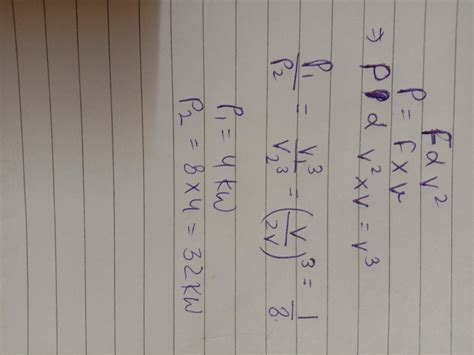 F α v²
P = F × v
⇒ P α v² × v = v³
P₁/P₂ = v₁³/v₂³ = (v/2v)³ = 1/8
P₁ = 4 kW
P₂ = 8 × 4 = 32 kW